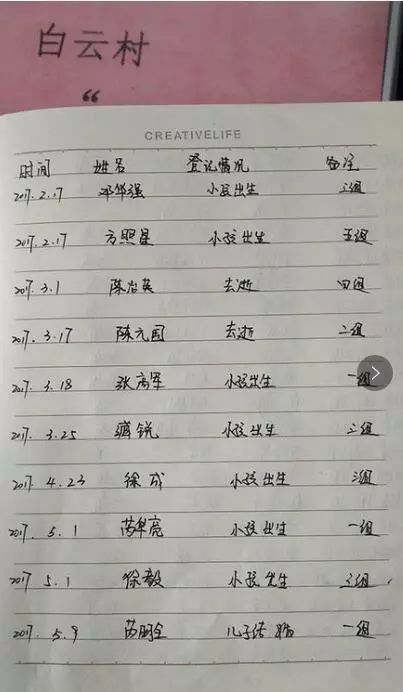 白云村
“
CREATIVELIFE
时间 姓名 登记情况 备注
2017.2.17 邓华强 小孩出生 三组
2017.2.17 方照星 小孩出生 五组
2017.3.1 陈启英 去逝 四组
2017.3.17 陈元国 去逝 二组
2017.3.18 张高军 小孩出生 一组
2017.3.25 锐 小孩出生 三组
2017.4.23 徐成 小孩出生 组
2017.5.1 亮 小孩出生 一组
2017.5.1 徐毅 小孩出生 组
2017.5.9 儿子结婚 一组